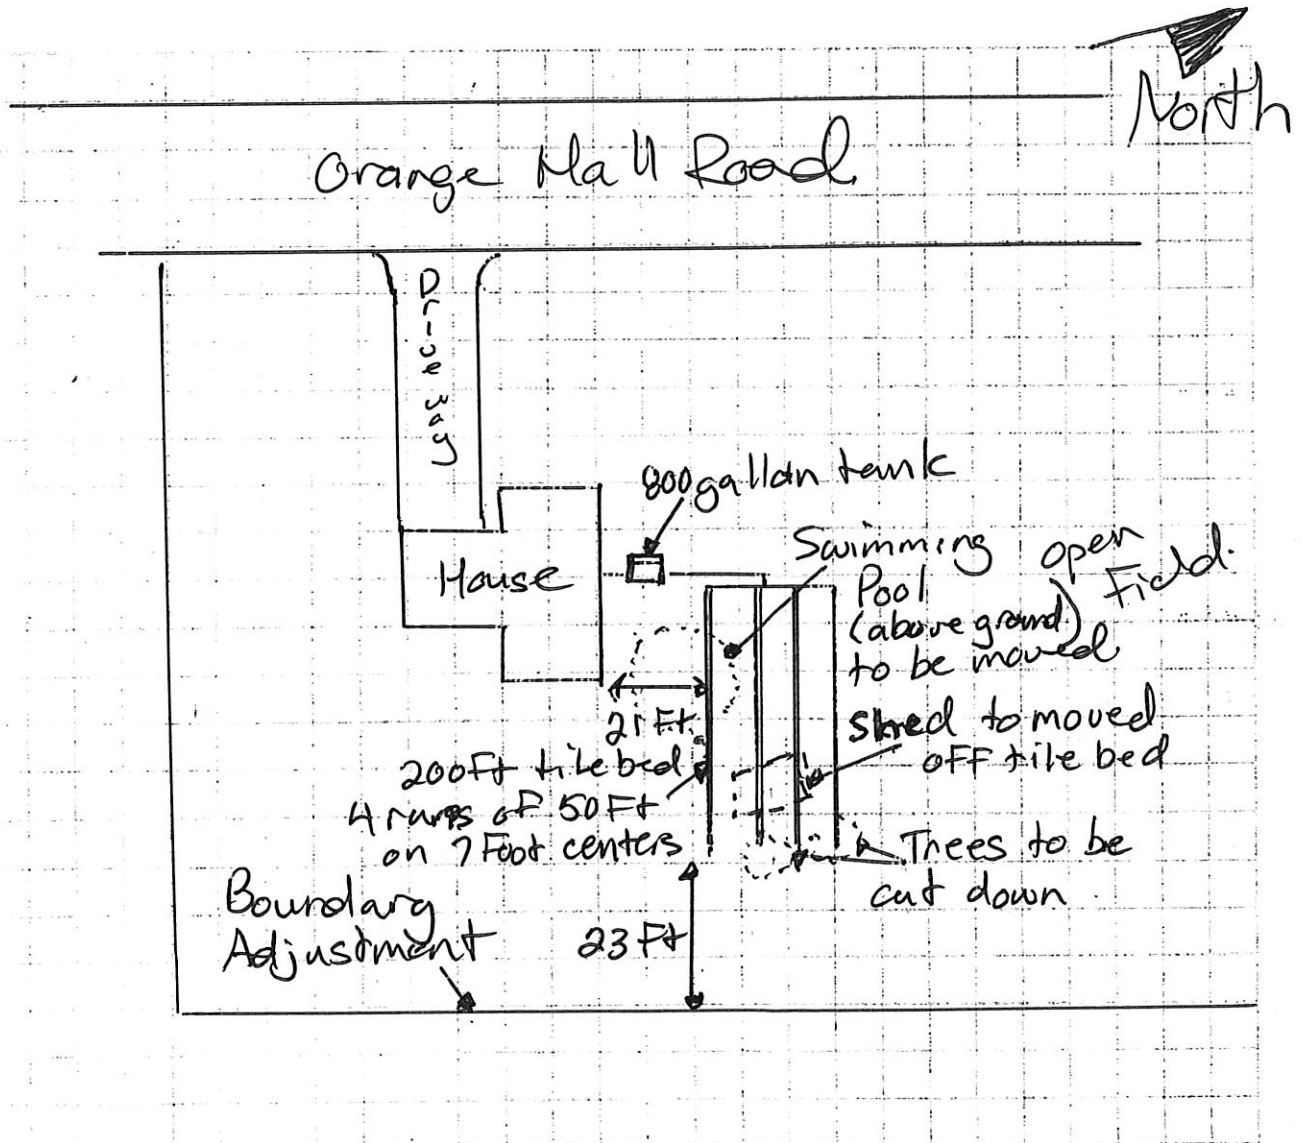 North
Orange Hall Road
Driveway
800 gallon tank
House
Swimming
Pool
(above ground)
to be moved
open
Field.
21 Ft
Shed to moved
off tile bed
200 Ft tile bed
4 runs of 50 Ft
on 7 Foot centers
Trees to be
cut down
Boundary
Adjustment
23 Ft